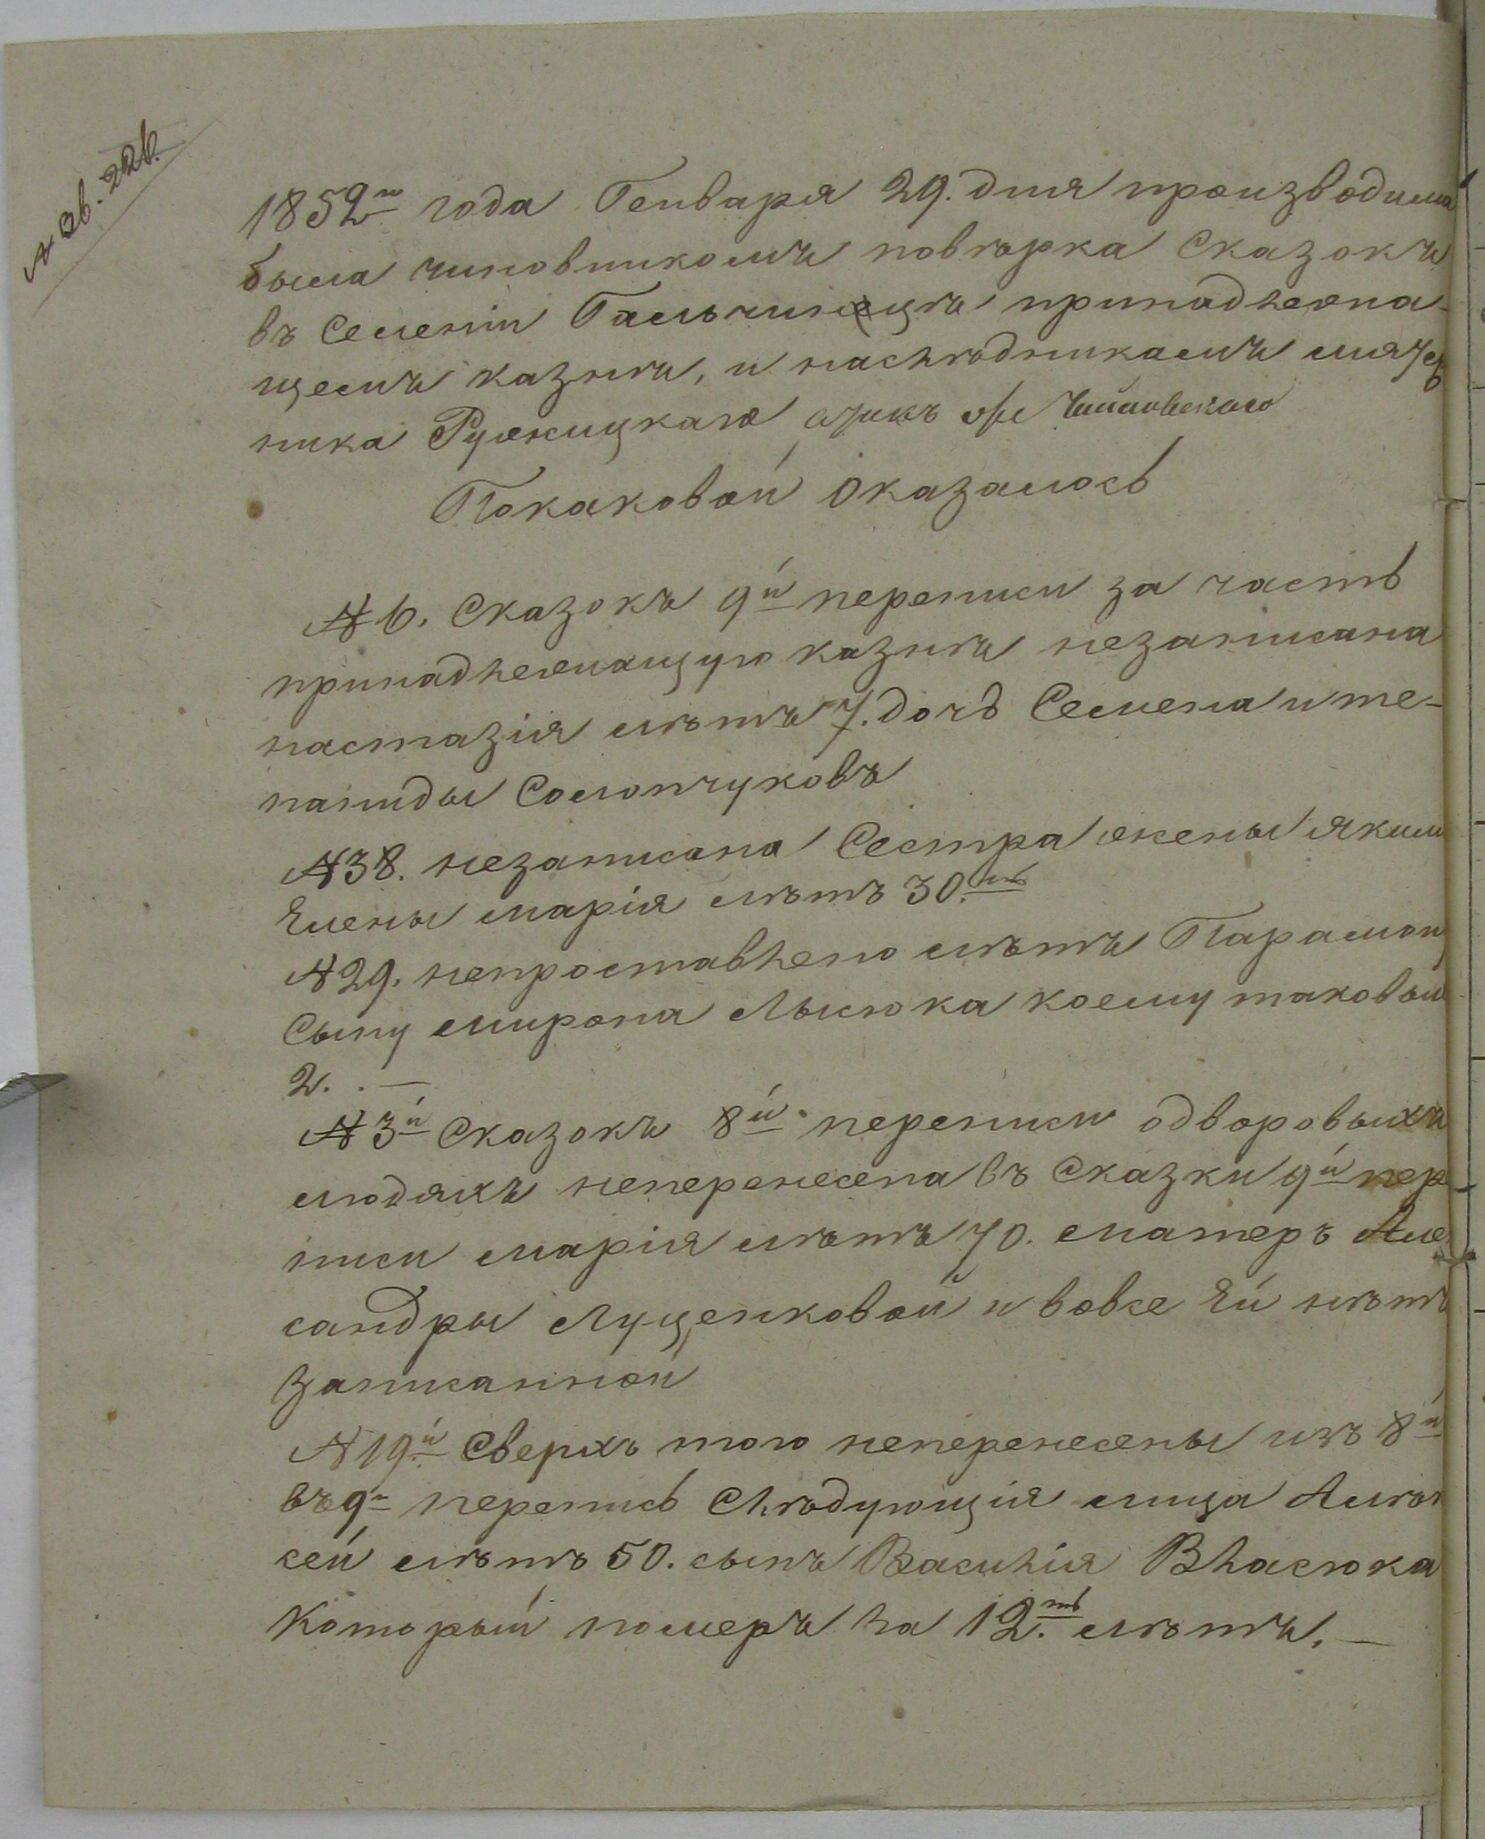 1852го года Генваря 29. дня производима
была чиновникомъ повѣрка Сказокъ
въ Селеніи Гальчинецъ принадлежа-
щемъ казнѣ, и наслѣдникамъ
ника Ружицкаго
Покаковой оказалось
№ 6. Сказокъ 9й переписи за часть
принадлежащую казнѣ незаписана
настазія лѣтъ 7. дочь Семена и те-
паниды Солопчуковъ
№38. незаписана Сестра жены Яким
Елены марія лѣтъ 30.ть
№29. непроставлено лѣтъ Парамон
Сыну мирона Лысюка коему таковым
2. . —
№3й Сказокъ 8й переписи одворовыхъ
людяхъ неперенесена въ Сказки 9й пере
писи марія лѣтъ 70. матеръ Але
сандры Лущенковой и вовсе Ей нѣтъ
записанной
№19й Сверхъ того неперенесены изъ 8й
въ 9ю перепись Слѣдующія лица Алѣк
сей лѣтъ 50. сынъ Василія Власюка
Который померъ на 12.ть лѣтъ. —